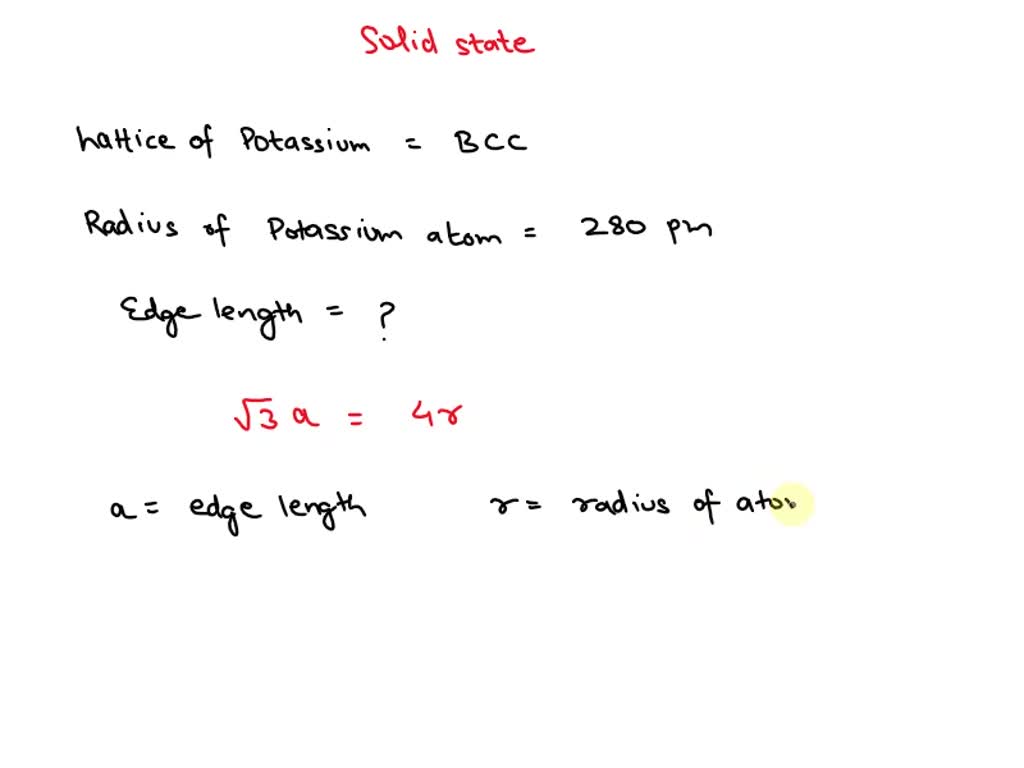 Solid state
Lattice of Potassium = BCC
Radius of Potassium atom = 280 pm
Edge length = ?
√3 a = 4r
a = edge length r = radius of atom